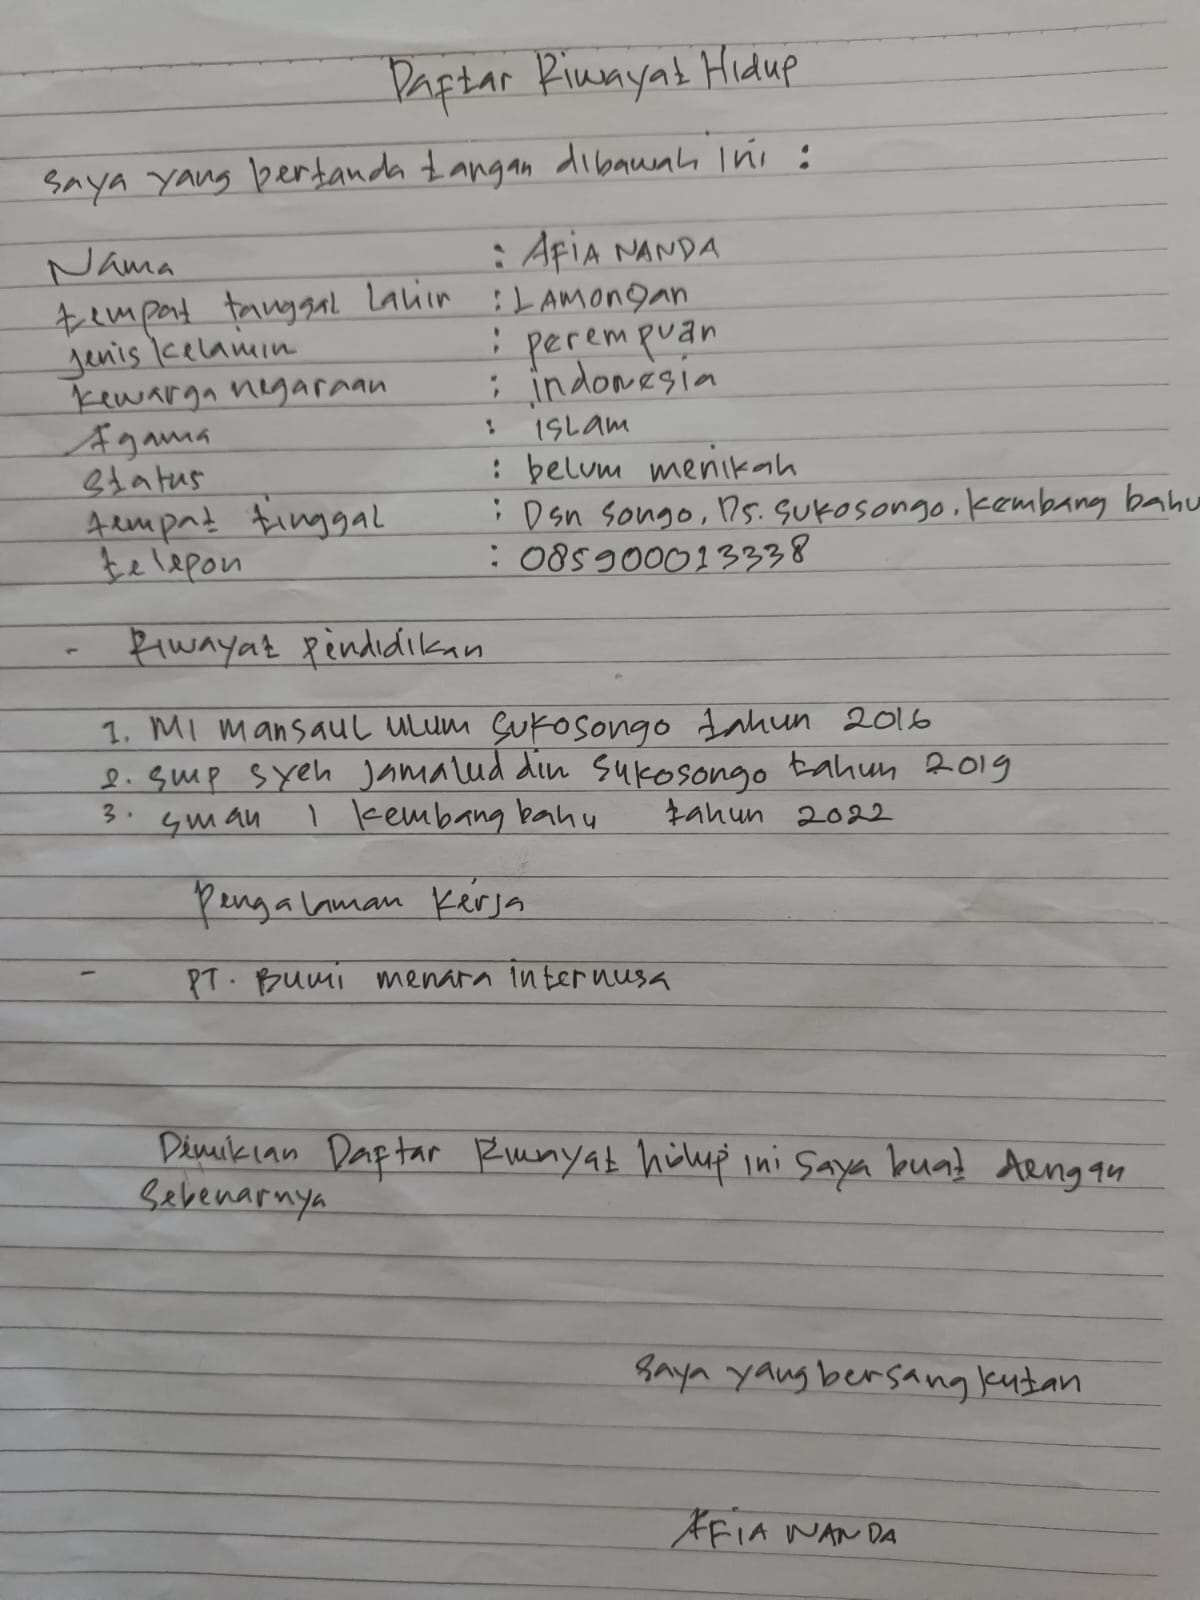 Daftar Riwayat Hidup
saya yang bertanda tangan dibawah ini :
Nama : AFiA NANDA
tempat tanggal Lahir : LAmongan
jenis kelamin : perempuan
kewarga negaraan : indonesia
Agama : isLam
status : belum menikah
tempat tinggal : Dsn songo, Ds. sukosongo. kembang bahu
telepon : 085900013338
- Riwayat pendidikan
1. MI mansaul ulum sukosongo tahun 2016
2. smp syeh jamalud din sukosongo tahun 2019
3. sman 1 kembang bahu tahun 2022
Pengalaman kerja
- PT. Bumi menara internusa
Demikian Daftar Riwayat hidup ini saya buat dengan
sebenarnya
saya yang bersangkutan
AFiA NANDA